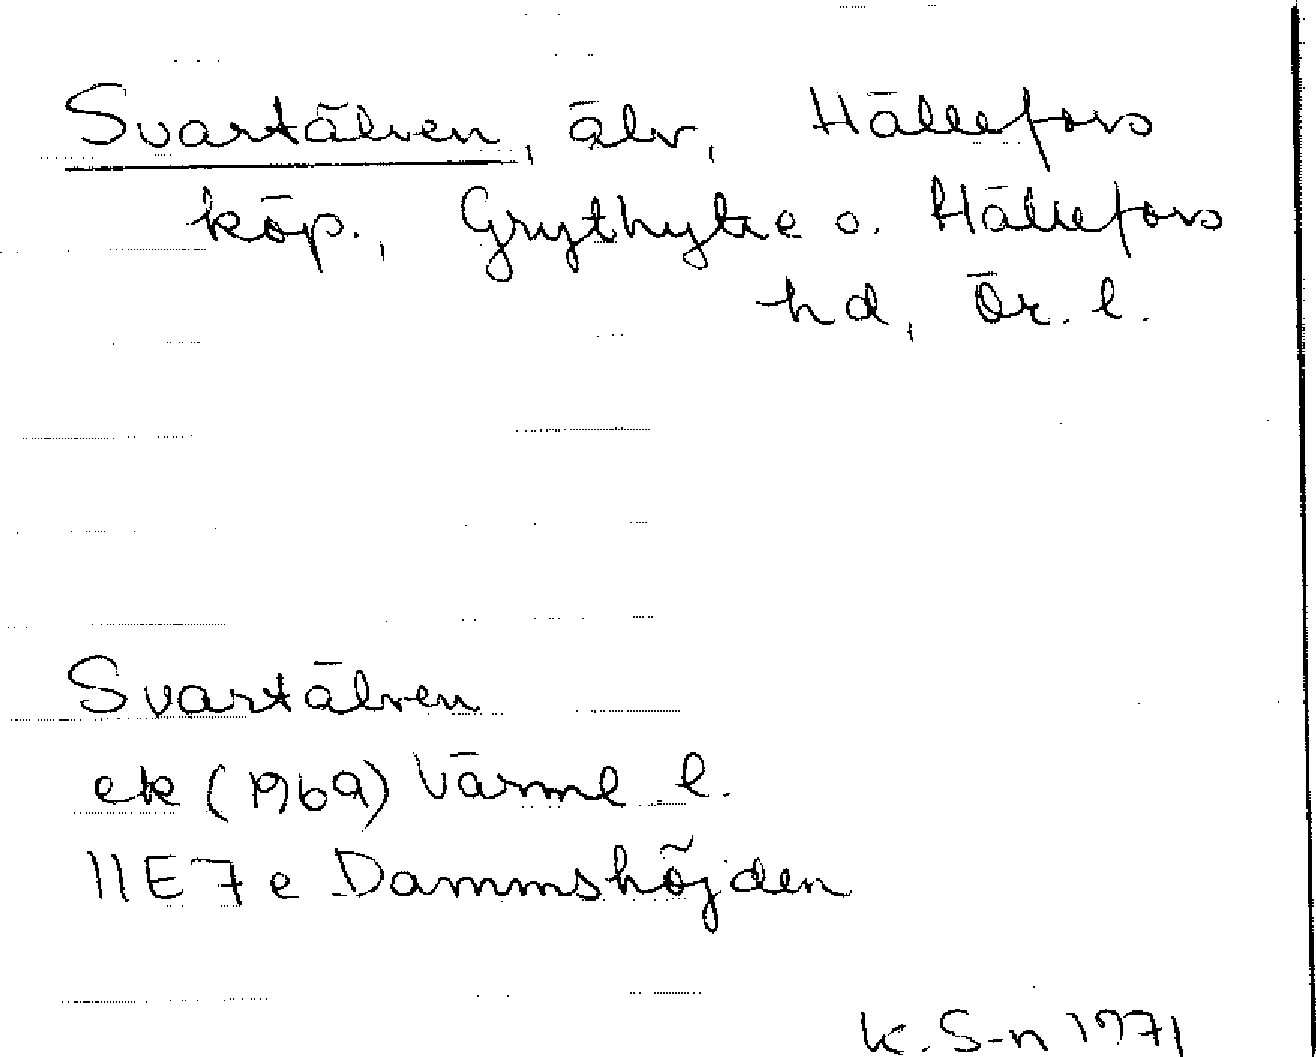 Svartälven, älv, Hällefors
köp., Grythytte o. Hällefors
hd, Ör. l.
Svartälven
ek (1969) Värml l.
11E7e Dammshöjden
K. S-n 1971